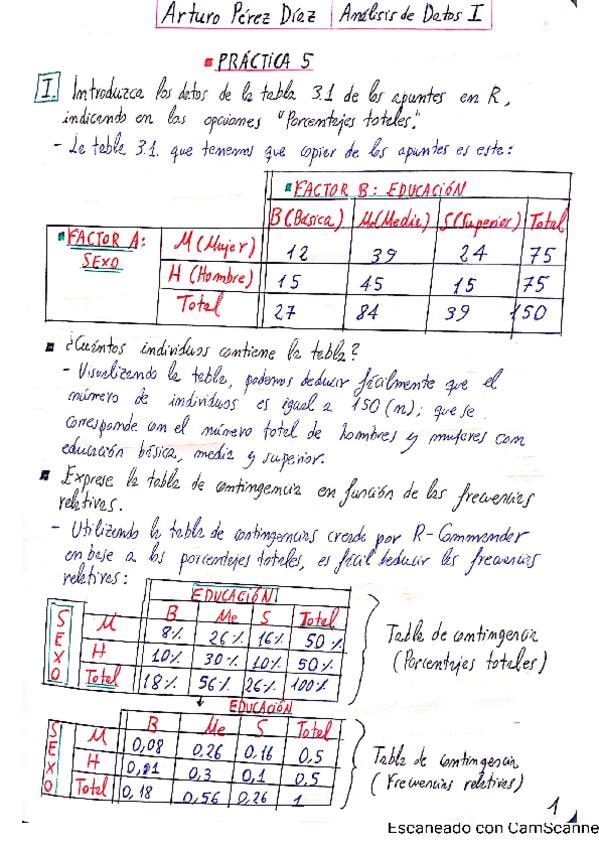 Arturo Pérez Díaz | Análisis de Datos I
PRÁCTICA 5
I. Introduzca los datos de la tabla 3.1 de los apuntes en R,
indicando en las opciones "Porcentajes totales."
- La tabla 3.1. que tenemos que copiar de los apuntes es esta:
FACTOR B: EDUCACIÓN
B (Básica) Md (Media) S (Superior) Total
FACTOR A: SEXO
M (Mujer) 12 39 24 75
H (Hombre) 15 45 15 75
Total 27 84 39 150
¿Cuántos individuos contiene la tabla?
- Visualizando la tabla, podemos deducir fácilmente que el
número de individuos es igual a 150 (n); que se
corresponde con el número total de hombres y mujeres con
educación básica, media y superior.
Exprese la tabla de contingencia en función de las frecuencias
relativas.
- Utilizando la tabla de contingencias creada por R-Commander
en base a los porcentajes totales, es fácil deducir las frecuencias
relativas:
EDUCACIÓN
SEXO
B Me S Total
M 8% 26% 16% 50%
H 10% 30% 10% 50%
Total 18% 56% 26% 100%
Tabla de contingencia
(Porcentajes totales)
EDUCACIÓN
SEXO
B Me S Total
M 0,08 0,26 0,16 0,5
H 0,3 0,1 0,5
Total 0,18 0,56 0,26 1
Tabla de contingencia
(Frecuencias relativas)
1
Escaneado con CamScanne